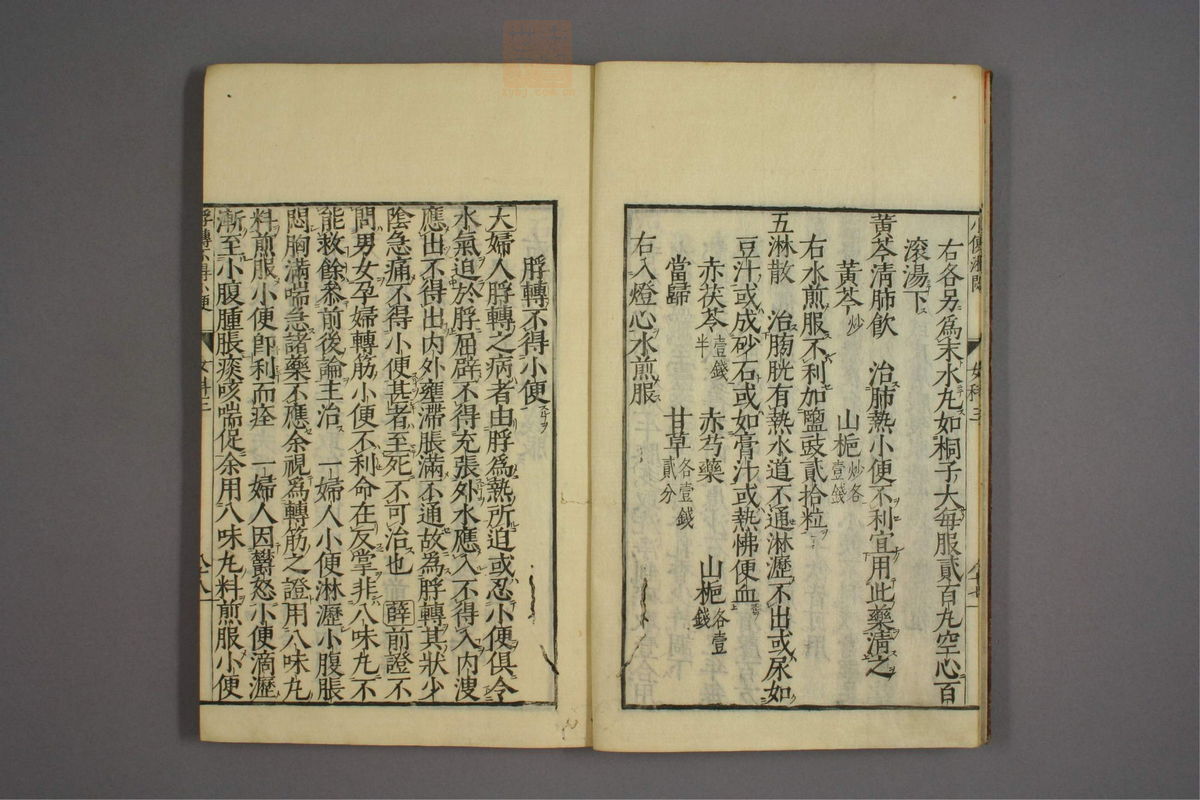 小便淋閟
右各另爲末水丸如桐子大每服貳百丸空心百
滚湯下
黃芩淸肺飮　治肺熱小便不利宜用此藥淸之
黃芩炒　山梔炒各壹錢
右水煎服不利加鹽豉貳拾粒
五淋散　治膀胱有熱水道不通淋瀝不出或尿如
豆汁或成砂石或如膏汁或熱怫便血
赤茯苓壹錢半　赤芍藥　山梔各壹錢
當歸　甘草各壹錢貳分
右入燈心水煎服
脬轉不得小便
大婦人脬轉之病者由脬爲熱所迫或忍小便俱令
水氣迫於脬屈辟不得充張外水應入不得入內溲
應出不得出內外壅滯脹滿不通故爲脬轉其狀少
陰急痛不得小便甚者至死不可治也　薛前證不
問男女孕婦轉筋小便不利命在反掌非八味丸不
能救餘叅前後論主治　一婦人小便淋瀝小腹脹
悶胸滿喘急諸藥不應余視爲轉筋之證用八味丸
料煎服小便卽利而痊　一婦人因鬱怒小便滴瀝
漸至小腹腫脹痰咳喘促余用八味丸料煎服小便
脬轉不得小便